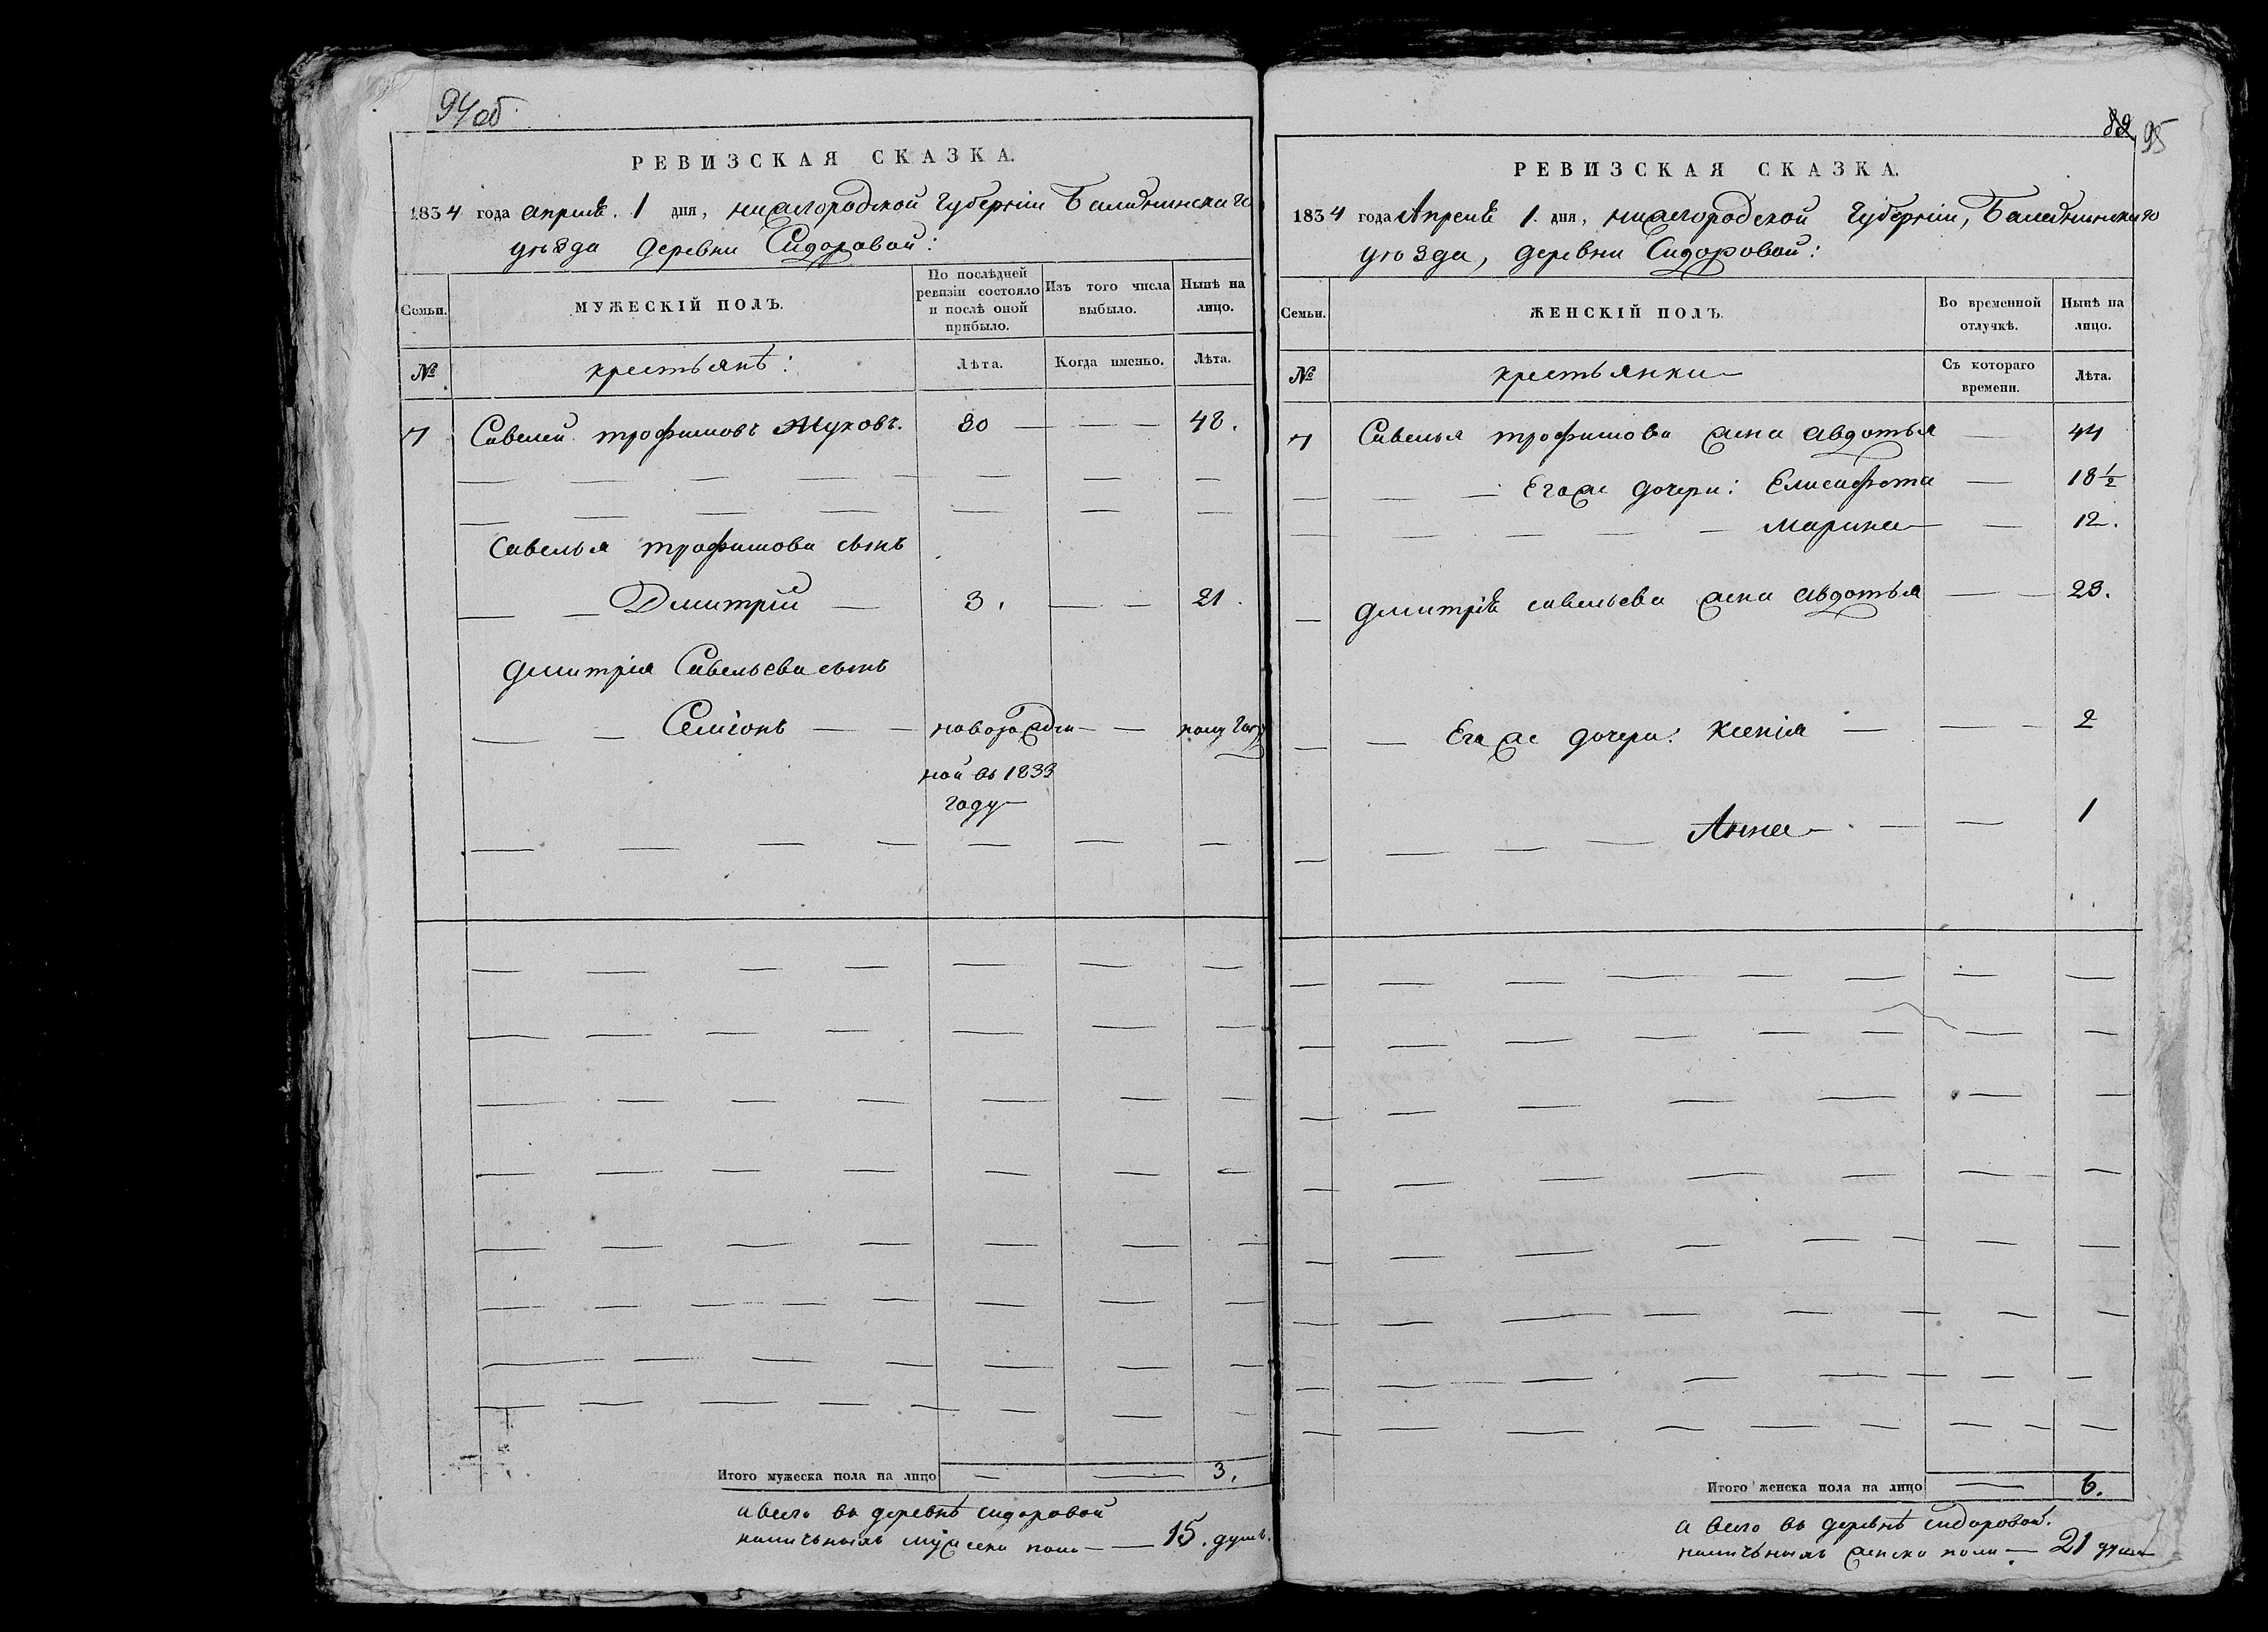 94 об
РЕВИЗСКАЯ СКАЗКА.
1834 года апреля. 1 дня, нижегородской губернiи Балахнинскаго
уѣзда деревни Сидоровой:
Семьи.
МУЖЕСКІЙ ПОЛЪ.
По послѣдней ревизіи состояло и послѣ оной прибыло.
Изъ того числа выбыло.
Нынѣ на лицо.
№
крестьянѣ:
Лѣта.
Когда именно.
Лѣта.
7 Савелей трофимовъ Жуковъ. 30 — — — 48.
Савелья трофимова сынъ
Дмитрiй — 3. — — 21.
дмитрiя Савельева сынъ
Семiонъ — — новорожден — — полугоду
ной въ 1833
году
Итого мужеска пола на лицо — — 3.
а всего въ деревнѣ сидоровой
наличныхъ мужеска пола — — 15. душъ.
89 95
РЕВИЗСКАЯ СКАЗКА.
1834 года Апреля 1. дня, нижегородской губернiи, Балахнинскаго
уѣзда, деревни Сидоровой:
Семьи.
ЖЕНСКІЙ ПОЛЪ.
Во временной отлучкѣ.
Нынѣ на лицо.
№
крестьянки
Съ котораго времени.
Лѣта.
7 Савелья трофимова жена авдотья — 44
Егоже дочери: Елисафета — 18 1/2
марина — 12.
дмитрiя савельева жена авдотья — — 23.
Егоже дочери: Ксенiя — — — 2
Анна — — — 1
Итого женска пола на лицо — 6.
а всего въ деревнѣ сидоровой.
наличныхъ женска пола — 21 душа